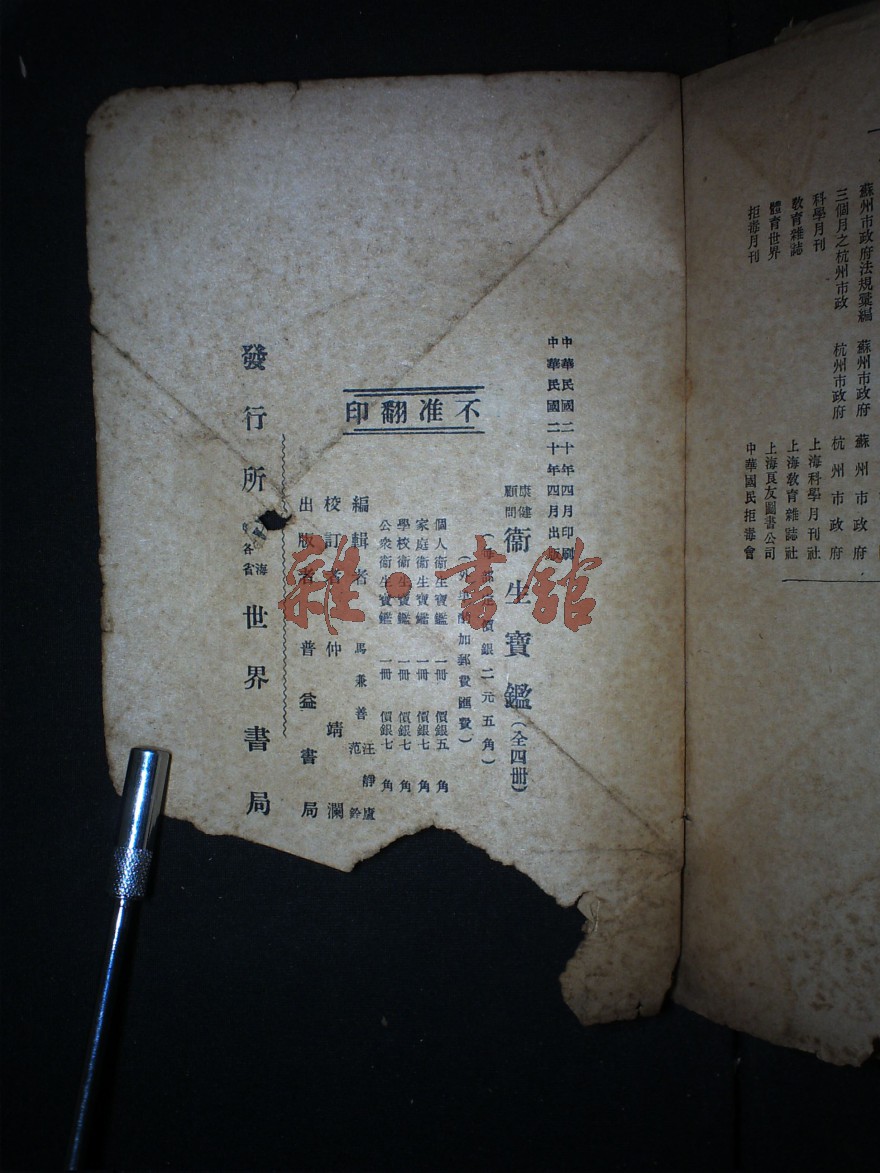 蘇州市政府法規彙編　蘇州市政府　蘇州市政府
三個月之杭州市政　杭州市政府　杭州市政府
科學月刊　上海科學月刊社
教育雜誌　上海教育雜誌社
體育世界　上海良友圖書公司
拒毒月刊　中華國民拒毒會
中華民國二十年四月印刷
中華民國二十年四月出版
康健顧問　衞生寶鑑（全四册）
價銀二元五角）
加郵費匯費）
個人衞生寶鑑　一冊　價銀五角
家庭衞生寶鑑　一冊　價銀七角
學校衞生寶鑑　一冊　價銀七角
公衆衞生寶鑑　一冊　價銀七角
不准翻印
編輯者　馬兼善　汪靜廬　范銓
校訂者　仲靖瀾
出版者　普益書局
發行所　海　各省　世界書局
雜·書館